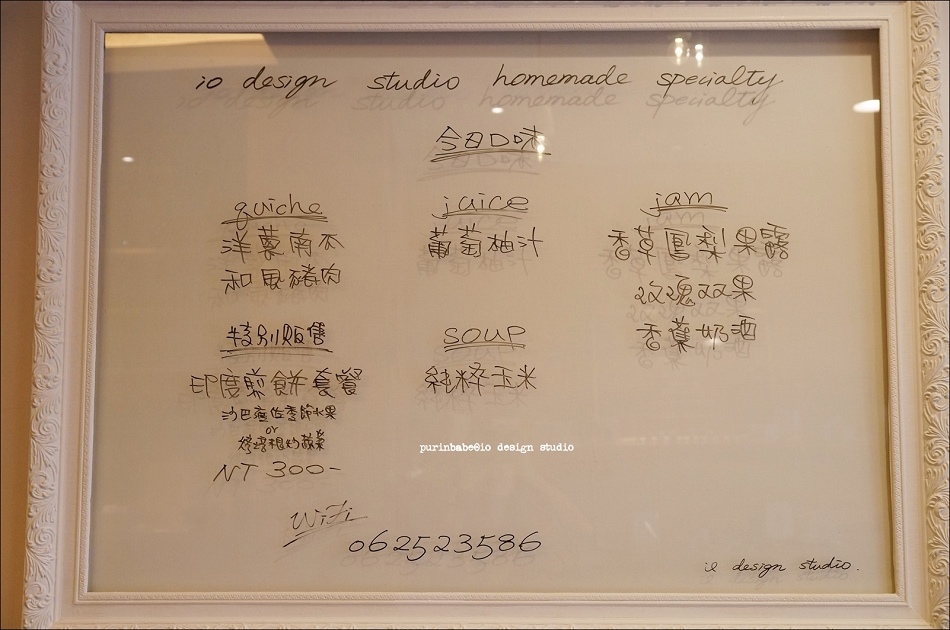 io design studio homemade specialty
今日口味
quiche
洋蔥南瓜
和風豬肉
juice
葡萄柚汁
jam
香草鳳梨果露
玫瑰双果
香蕉奶酒
特別販售
印度煎餅套餐
沙巴翁佐季節水果
or
培根炒蔬菜
NT 300-
soup
純粹玉米
purinbabe@io design studio
WiFi
062523586
io design studio.